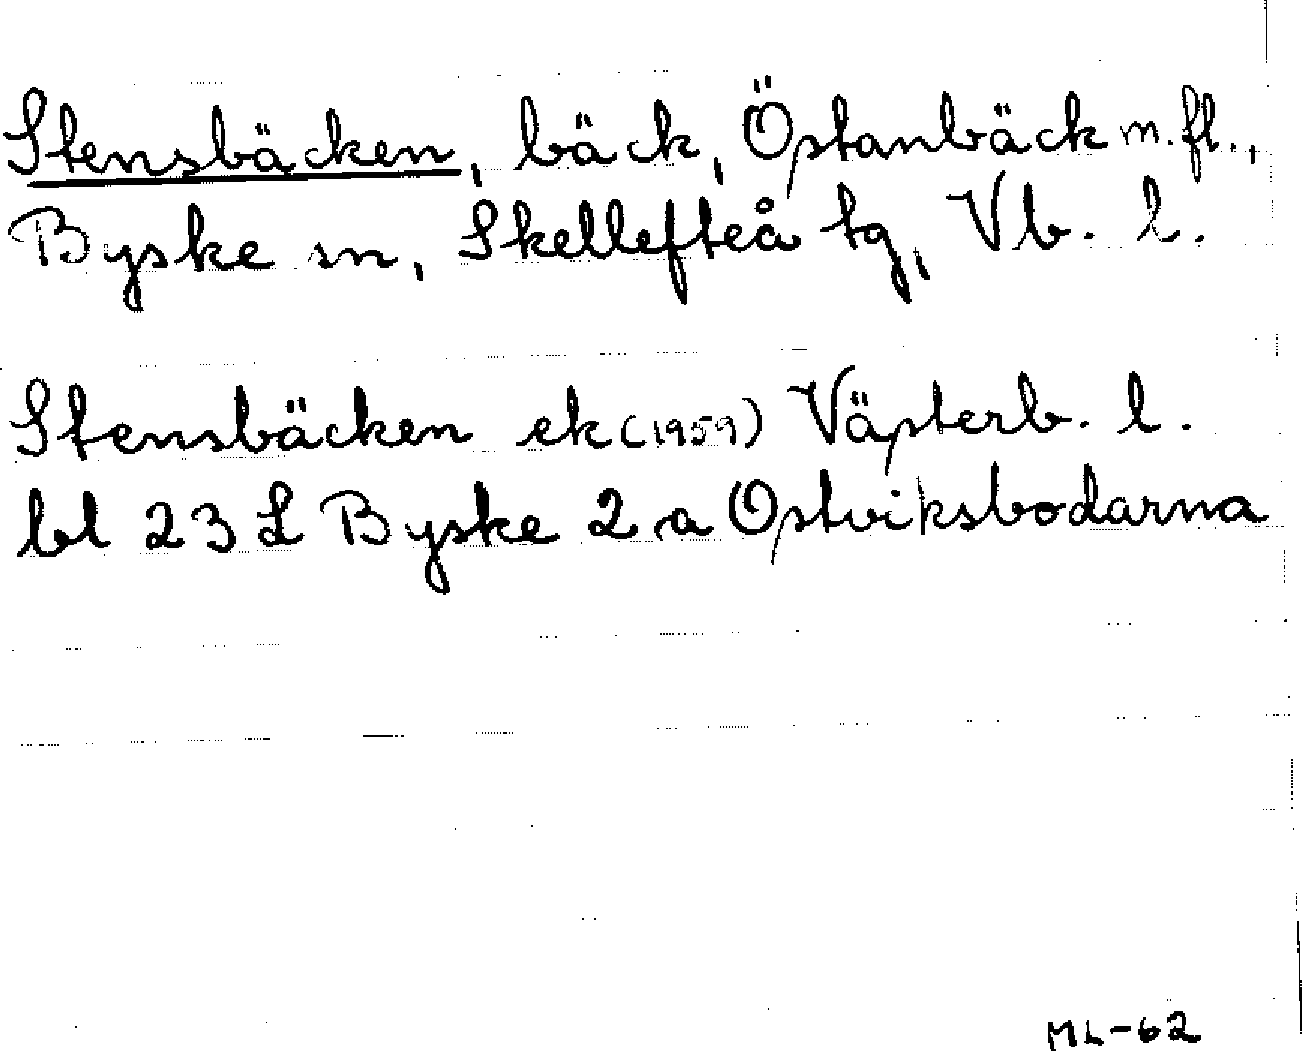 Stensbäcken, bäck, Östanbäck m.fl.,
Byske sn, Skellefteå tg, Vb. l.
Stensbäcken ek (1959) Västerb. l.
bl 23 L Byske 2 a Ostviksbodarna
ML-62